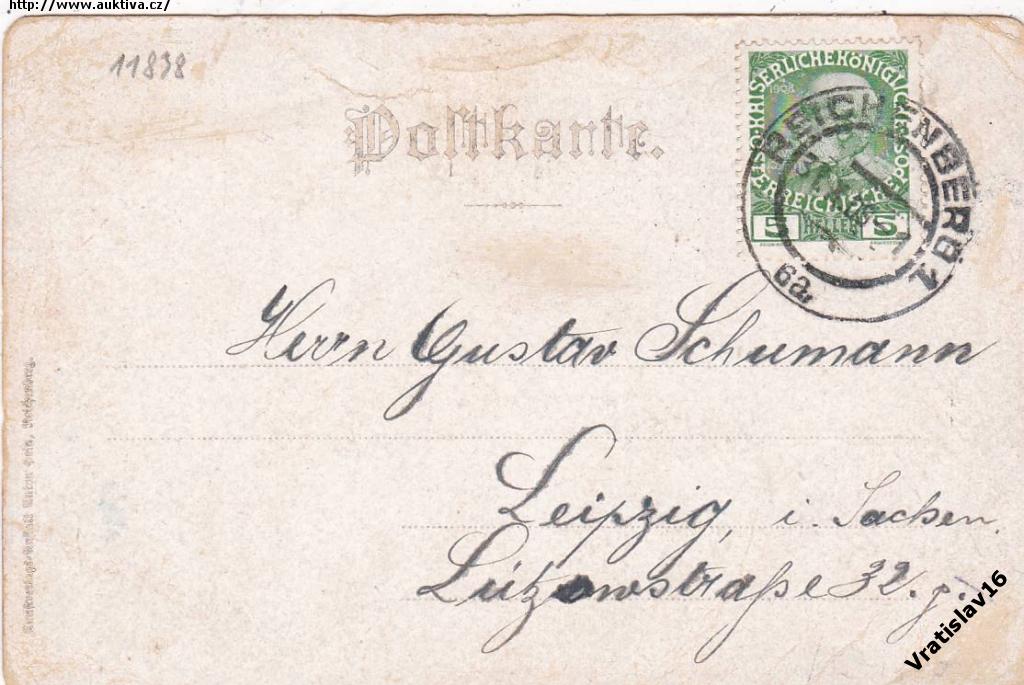 http://www.auktiva.cz/
11838
Postkarte.
KAISERLICHE KÖNIGLICHE
ÖSTERREICHISCHE POST
1908
5 HELLER 5
REICHENBERG 1
6a
Herrn Gustav Schumann
Leipzig, i. Sachsen.
Lützowstraße 32. g.
Vratislav16